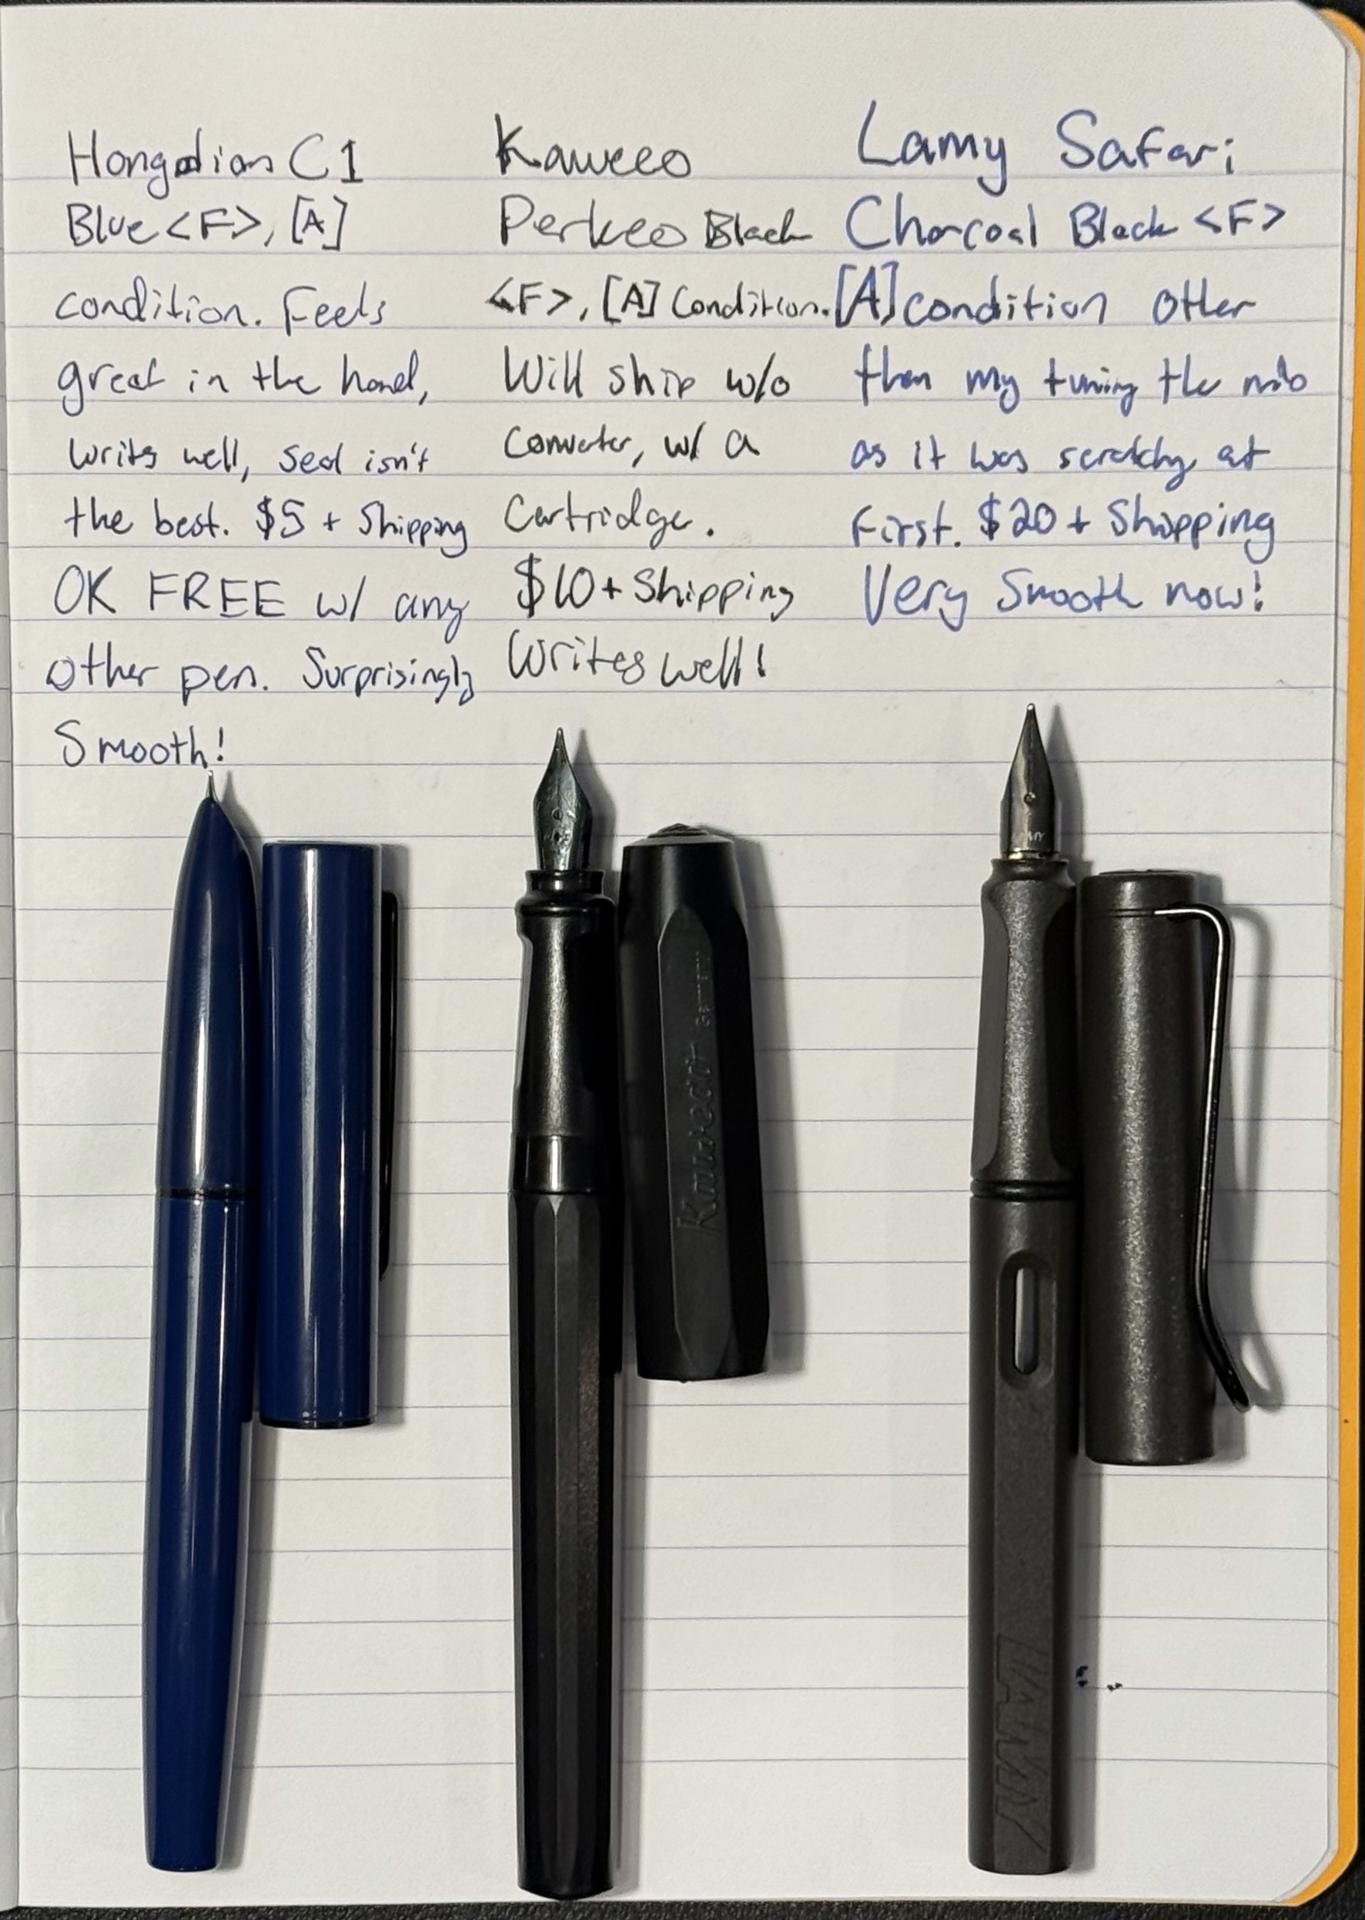 Hongdian C1
Blue <F>, [A]
condition. Feels
great in the hand,
writes well, seal isn't
the best. $5 + Shipping
OK FREE w/ any
other pen. Surprisingly
Smooth!
Kaweco
Perkeo Black
<F>, [A] Condition.
Will ship w/o
Converter, w/ a
Cartridge.
$10 + Shipping
Writes well!
Lamy Safari
Charcoal Black <F>
[A] condition other
than my tuning the nib
as it was scratchy at
First. $20 + Shipping
Very Smooth now!
LAMY
Kaweco Germany
LAMY